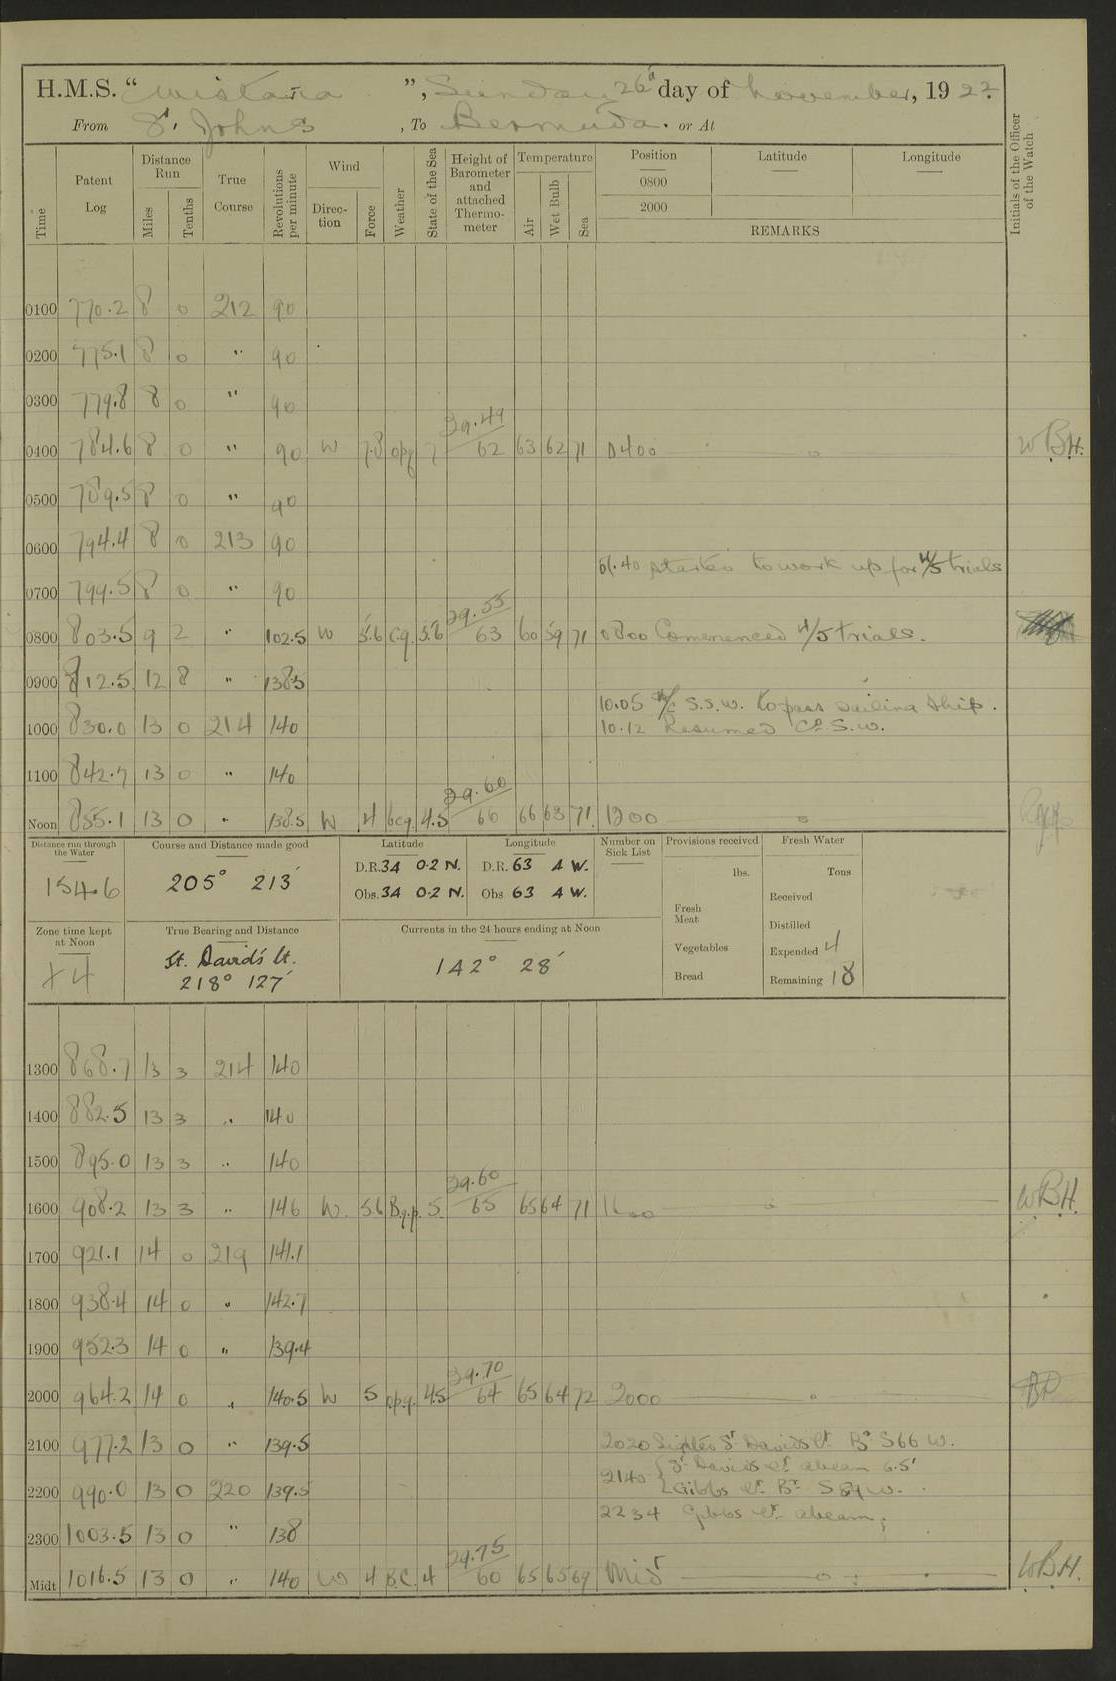 H.M.S. “ Wistaria ”, Sunday 26th day of November, 1922.
From St. Johns , To Bermuda. or At
Time
Patent Log
Distance Run
Miles
Tenths
True Course
Revolutions per minute
Wind
Direction
Force
Weather
State of the Sea
Height of Barometer and attached Thermometer
Temperature
Air
Wet Bulb
Sea
Position
0800
2000
Latitude
Longitude
REMARKS
Initials of the Officer of the Watch
0100 770.2 8 0 212 90
0200 775.1 8 0 " 90
0300 779.8 8 0 " 90
0400 784.6 8 0 " 90 W 7.8 opq 7 29.49 62 63 62 71 0400 W.B.H.
0500 789.5 8 0 " 90
0600 794.4 8 0 213 90
06.40 started to work up for 4/5 trials
0700 799.5 8 0 " 90
0800 803.5 9 2 " 102.5 W 5.6 c.q. 5.6 29.55 63 60 59 71 0800 Commenced 4/5 trials.
0900 812.5 12 8 " 138.5
10.05 A/c S.S.W. to pass sailing ship.
1000 830.0 13 0 214 140 10.12 Resumed Co. S.W.
1100 842.7 13 0 " 140
Noon 855.1 13 0 " 138.5 W 4 bcq 4.5 29.60 66 66 63 71 1200
Distance run through the Water
154.6
Course and Distance made good
205° 213'
Latitude
D.R. 34 02 N.
Obs. 34 02 N.
Longitude
D.R. 63 4 W.
Obs 63 4 W.
Number on Sick List
Provisions received
lbs.
Fresh Meat
Vegetables
Bread
Fresh Water
Tons
Received
Distilled
Expended 4
Remaining 18
Zone time kept at Noon
+4
True Bearing and Distance
St. David's Lt.
218° 127'
Currents in the 24 hours ending at Noon
142° 28'
1300 868.7 13 3 214 140
1400 882.5 13 3 " 140
1500 895.0 13 3 " 140
1600 908.2 13 3 " 146 W. 5.6 B.q.p. 5. 29.60 65 65 64 71 1600 W.B.H.
1700 921.1 14 0 219 141.1
1800 938.4 14 0 " 142.7
1900 952.3 14 0 " 139.4
2000 964.2 14 0 " 140.5 W 5 opq. 4.5 29.70 64 65 64 72 2000
2100 977.2 13 0 " 139.5 2020 Sighted St Davids Lt. Bg S66 W.
2140 St Davids Lt abeam 6.5'
2200 990.0 13 0 220 139.5 Gibbs Lt. Bg. S89W.
2234 Gibbs Lt. abeam.
2300 1003.5 13 0 " 138
Midt 1016.5 13 0 " 140 W 4 B.C. 4 29.75 60 65 65 69 Midt W.B.H.